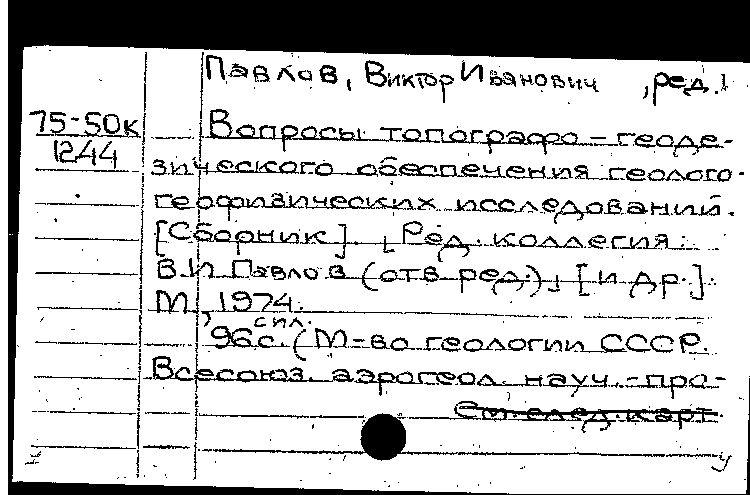 Павлов, Виктор Иванович , ред.
75-50к
1244
Вопросы топографо-геоде-
зического обеспечения геолого-
геофизических исследований.
[Сборник]. Ред. коллегия:
В.И. Павлов (отв. ред.) [и др.].
М., 1974.
96с. с ил. (М-во геологии СССР.
Всесоюз. аэрогеол. науч.-про-
См. след. карт.